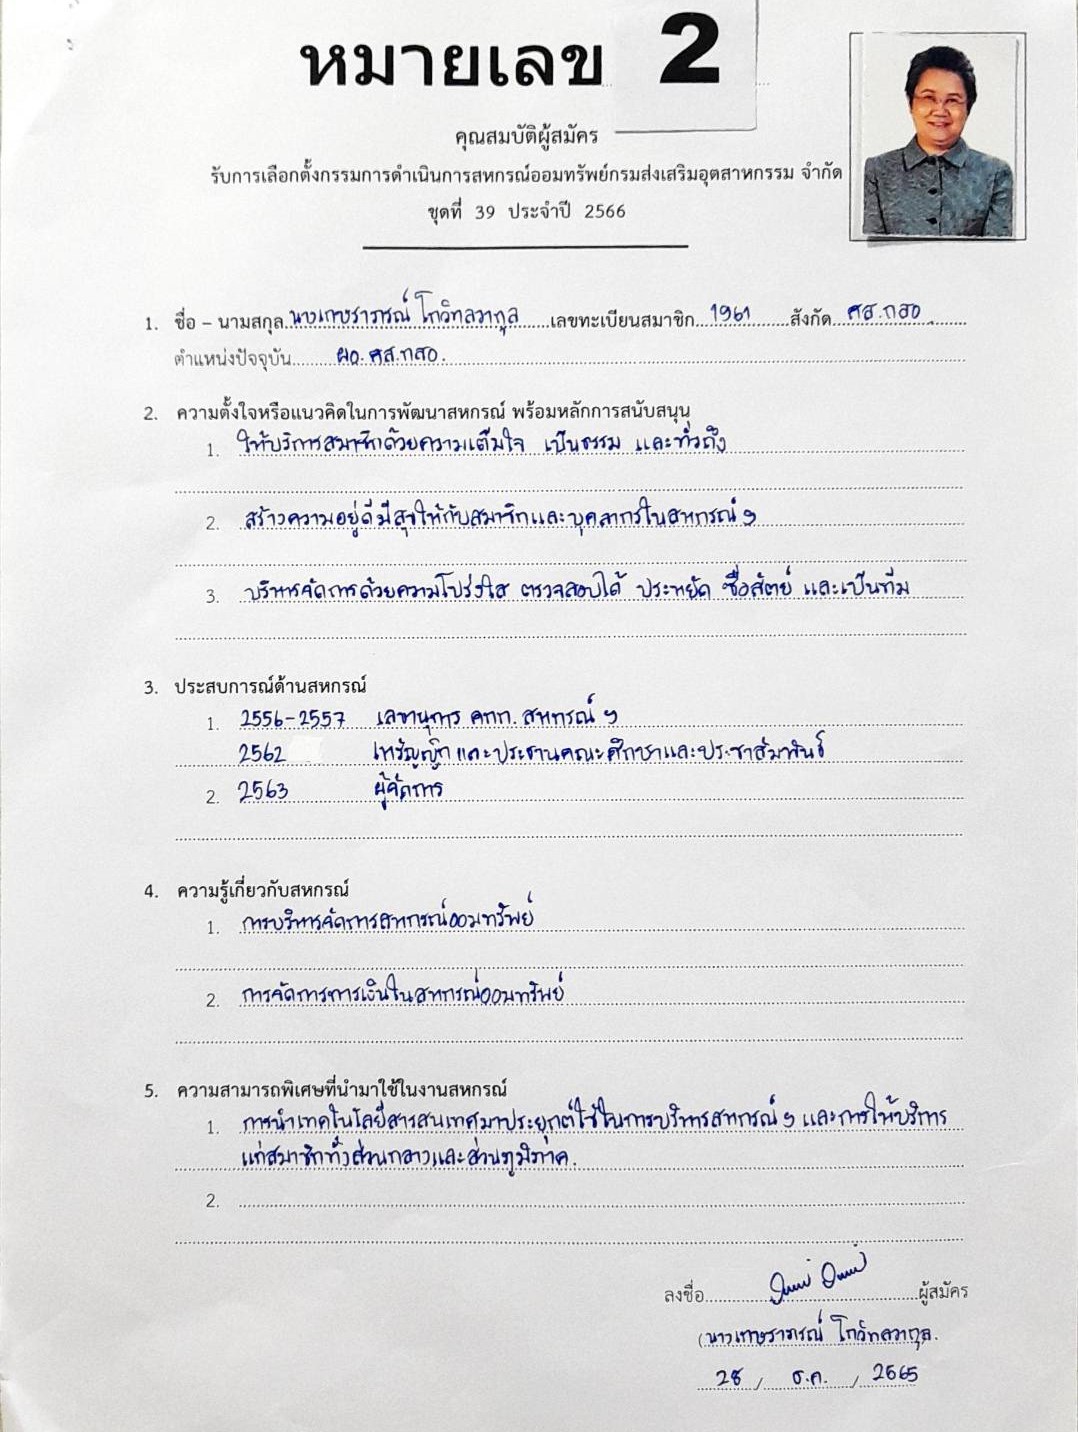 หมายเลข 2
คุณสมบัติผู้สมัคร
รับการเลือกตั้งกรรมการดำเนินการสหกรณ์ออมทรัพย์กรมส่งเสริมอุตสาหกรรม จำกัด
ชุดที่ 39 ประจำปี 2566
1. ชื่อ – นามสกุล นางเกษราภรณ์ โกวิทลวากุล เลขทะเบียนสมาชิก 1961 สังกัด ศส.กสอ.
ตำแหน่งปัจจุบัน ผอ.ศส.กสอ.
2. ความตั้งใจหรือแนวคิดในการพัฒนาสหกรณ์ พร้อมหลักการสนับสนุน
1. ให้บริการสมาชิกด้วยความเต็มใจ เป็นธรรม และทั่วถึง
2. สร้างความอยู่ดีมีสุขให้กับสมาชิกและบุคลากรในสหกรณ์ ฯ
3. บริหารจัดการด้วยความโปร่งใส ตรวจสอบได้ ประหยัด ซื่อสัตย์ และเป็นทีม
3. ประสบการณ์ด้านสหกรณ์
1. 2556-2557 เลขานุการ คกก. สหกรณ์ ฯ
2562 เหรัญญิก และประธานคณะศึกษาและประชาสัมพันธ์
2. 2563 ผู้จัดการ
4. ความรู้เกี่ยวกับสหกรณ์
1. การบริหารจัดการสหกรณ์ออมทรัพย์
2. การจัดการการเงินในสหกรณ์ออมทรัพย์
5. ความสามารถพิเศษที่นำมาใช้ในงานสหกรณ์
1. การนำเทคโนโลยีสารสนเทศมาประยุกต์ใช้ในการบริหารสหกรณ์ ฯ และการให้บริการ
แก่สมาชิกทั้งส่วนกลางและส่วนภูมิภาค.
2.
ลงชื่อ ผู้สมัคร
(นางเกษราภรณ์ โกวิทลวากุล.
28 / ธ.ค. / 2565